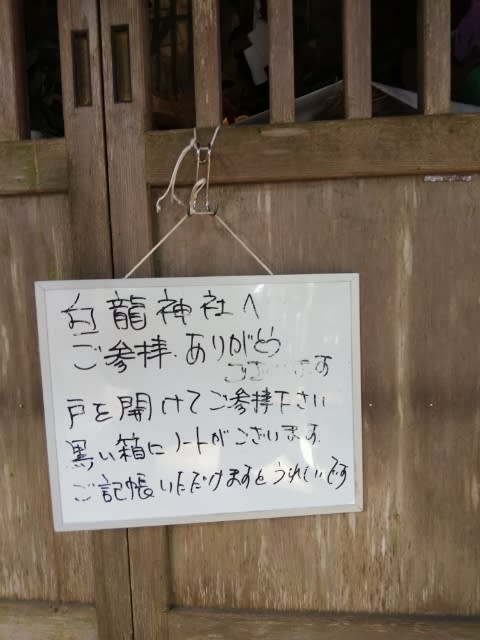 白龍神社へ
ご参拝ありがとう
ございます
戸を開けてご参拝下さい
黒い箱にノートがございます
ご記帳いただけますとうれしいです